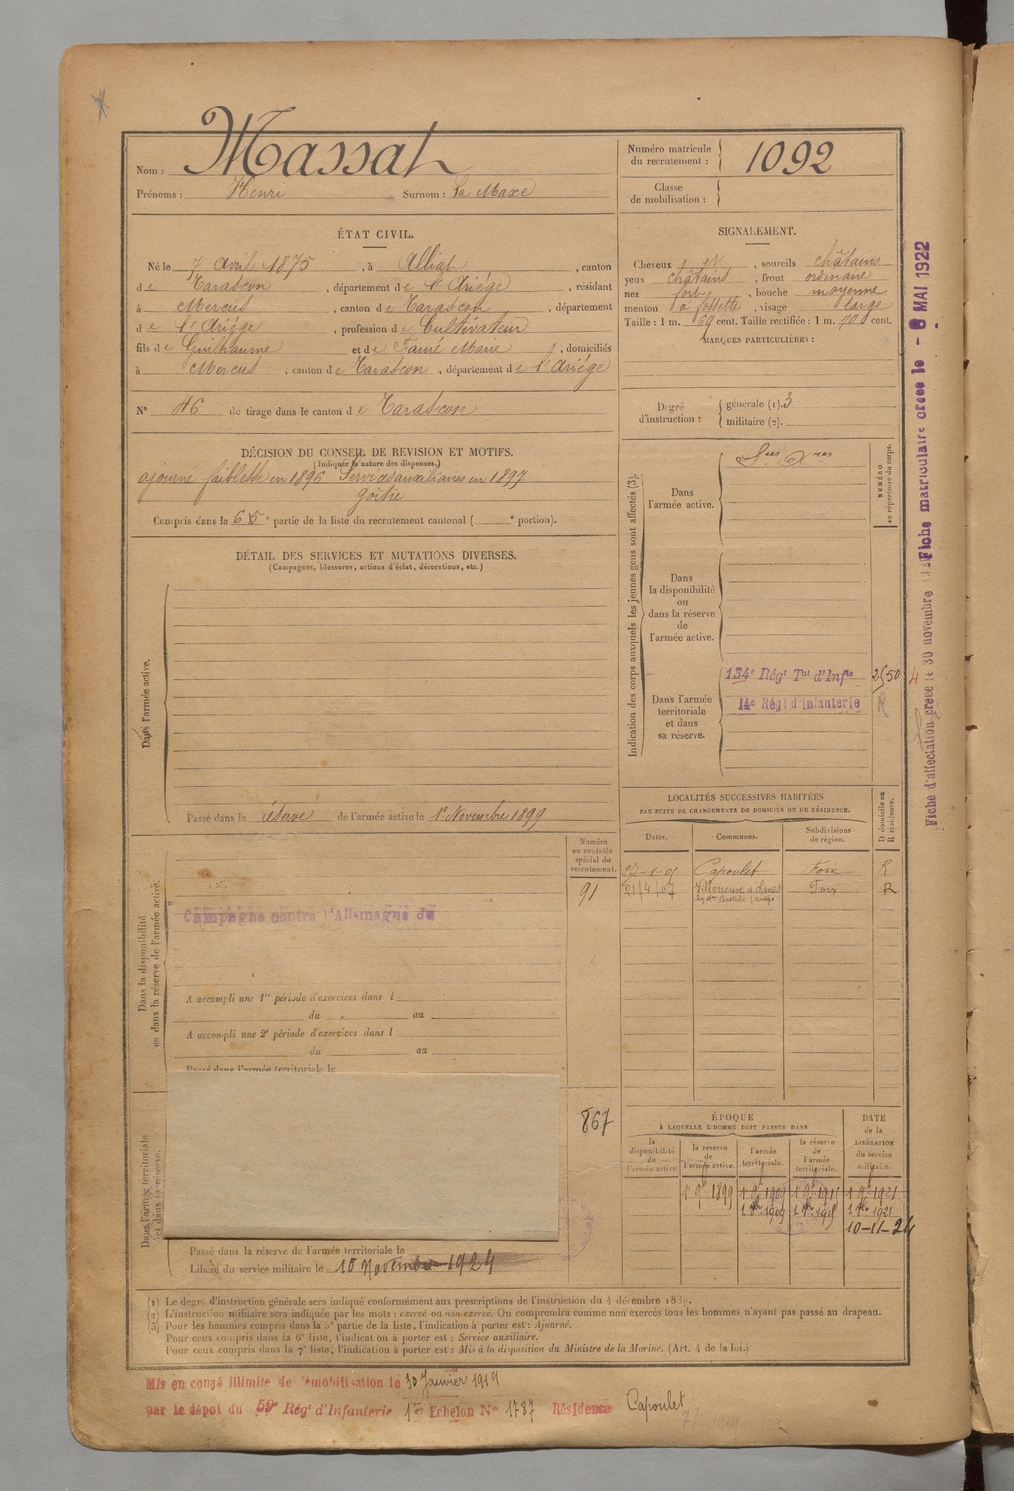 Nom : Massat
Prénoms : Henri Surnom : La Maxe
Numéro matricule du recrutement : 1092
Classe de mobilisation :
ÉTAT CIVIL.
Né le 7 Avril 1875, à Alliat, canton
de Tarascon, département de l'Ariége, résidant
à Mercus, canton de Tarascon, département
de l'Ariége, profession de Cultivateur
fils de Guilhaume et de Fauré Marie, domiciliés
à Mercus, canton de Tarascon, département de l'Ariége
N° 46 de tirage dans le canton de Tarascon
SIGNALEMENT.
Cheveux et, sourcils châtains
yeux châtains, front ordinaire
nez fort, bouche moyenne
menton à fossette, visage large
Taille : 1 m. 69 cent. Taille rectifiée : 1 m. 70 cent.
MARQUES PARTICULIÈRES :
Degré d'instruction : générale (1). 3
militaire (2).
DÉCISION DU CONSEIL DE REVISION ET MOTIFS.
(Indiquer la nature des dispenses.)
ajourné faiblesse en 1896 Services auxiliaires en 1897
goître
Compris dans la 6e partie de la liste du recrutement cantonal ( e portion).
DÉTAIL DES SERVICES ET MUTATIONS DIVERSES.
(Campagnes, blessures, actions d'éclat, décorations, etc.)
Dans l'armée active.
Passé dans la réserve de l'armée active le 1er Novembre 1899
Indication des corps auxquels les jeunes gens sont affectés (3).
NUMÉRO au répertoire du corps.
Dans l'armée active.
Sces Xres
Dans la disponibilité ou dans la réserve de l'armée active.
Dans l'armée territoriale et dans sa réserve.
134e Régt Tal d'Infie 2550
14e Régt d'Infanterie R
LOCALITÉS SUCCESSIVES HABITÉES
PAR SUITE DE CHANGEMENTS DE DOMICILE OU DE RÉSIDENCE.
Dates. Communes. Subdivisions de région. D domicile ou R résidence.
27-1-01 Capoulet Foix R
21/4/07 Villeneuve d'Olmes Foix R
Numéro au contrôle spécial du recrutement.
91
Dans la disponibilité ou dans la réserve de l'armée active.
Campagne contre l'Allemagne du
A accompli une 1re période d'exercices dans l
du au
A accompli une 2e période d'exercices dans l
du au
Passé dans l'armée territoriale le
Dans l'armée territoriale et dans sa réserve.
867
Passé dans la réserve de l'armée territoriale le
Libéré du service militaire le 10 Novembre 1924
ÉPOQUE
À LAQUELLE L'HOMME DOIT PASSER DANS
la disponibilité de l'armée active. la réserve de l'armée active. l'armée territoriale. la réserve de l'armée territoriale.
DATE de la LIBÉRATION du service militaire.
1 9e 1899 1 9e 1909 1 9e 1915 1 9e 1921
10-11-24
(1) Le degré d'instruction générale sera indiqué conformément aux prescriptions de l'instruction du 4 décembre
(2) L'instruction militaire sera indiquée par les mots : exercé ou non exercé. On comprendra comme non exercés tous les hommes n'ayant pas passé au drapeau.
(3) Pour les hommes compris dans la 5e partie de la liste, l'indication à porter est : Ajourné.
Pour ceux compris dans la 6e liste, l'indication à porter est : Service auxiliaire.
Pour ceux compris dans la 7e liste, l'indication à porter est : Mis à la disposition du Ministre de la Marine. (Art. 4 de la loi.)
Mis en congé illimité de démobilisation le 30 Janvier 1919
par le dépôt du 59e Régt d'Infanterie 1er Echelon N° 1787 Résidence Capoulet
Fiche d'affectation créée le 30 novembre
Fiche matriculaire créée le - 8 MAI 1922